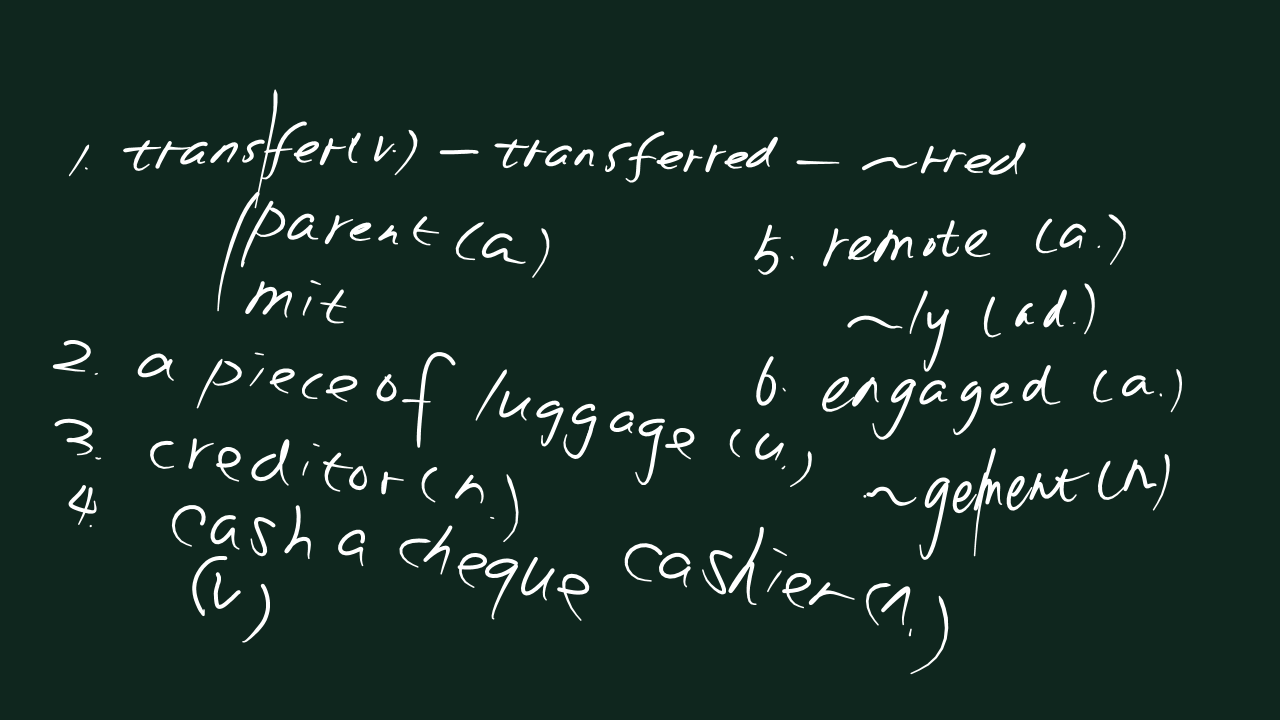 1. transfer(v.) — transferred — ~rred
parent (a)
mit
2. a piece of luggage (u.)
3. creditor (n.)
4. cash a cheque cashier (n.)
(v)
5. remote (a.)
~ly (ad.)
6. engaged (a.)
~gement (n)